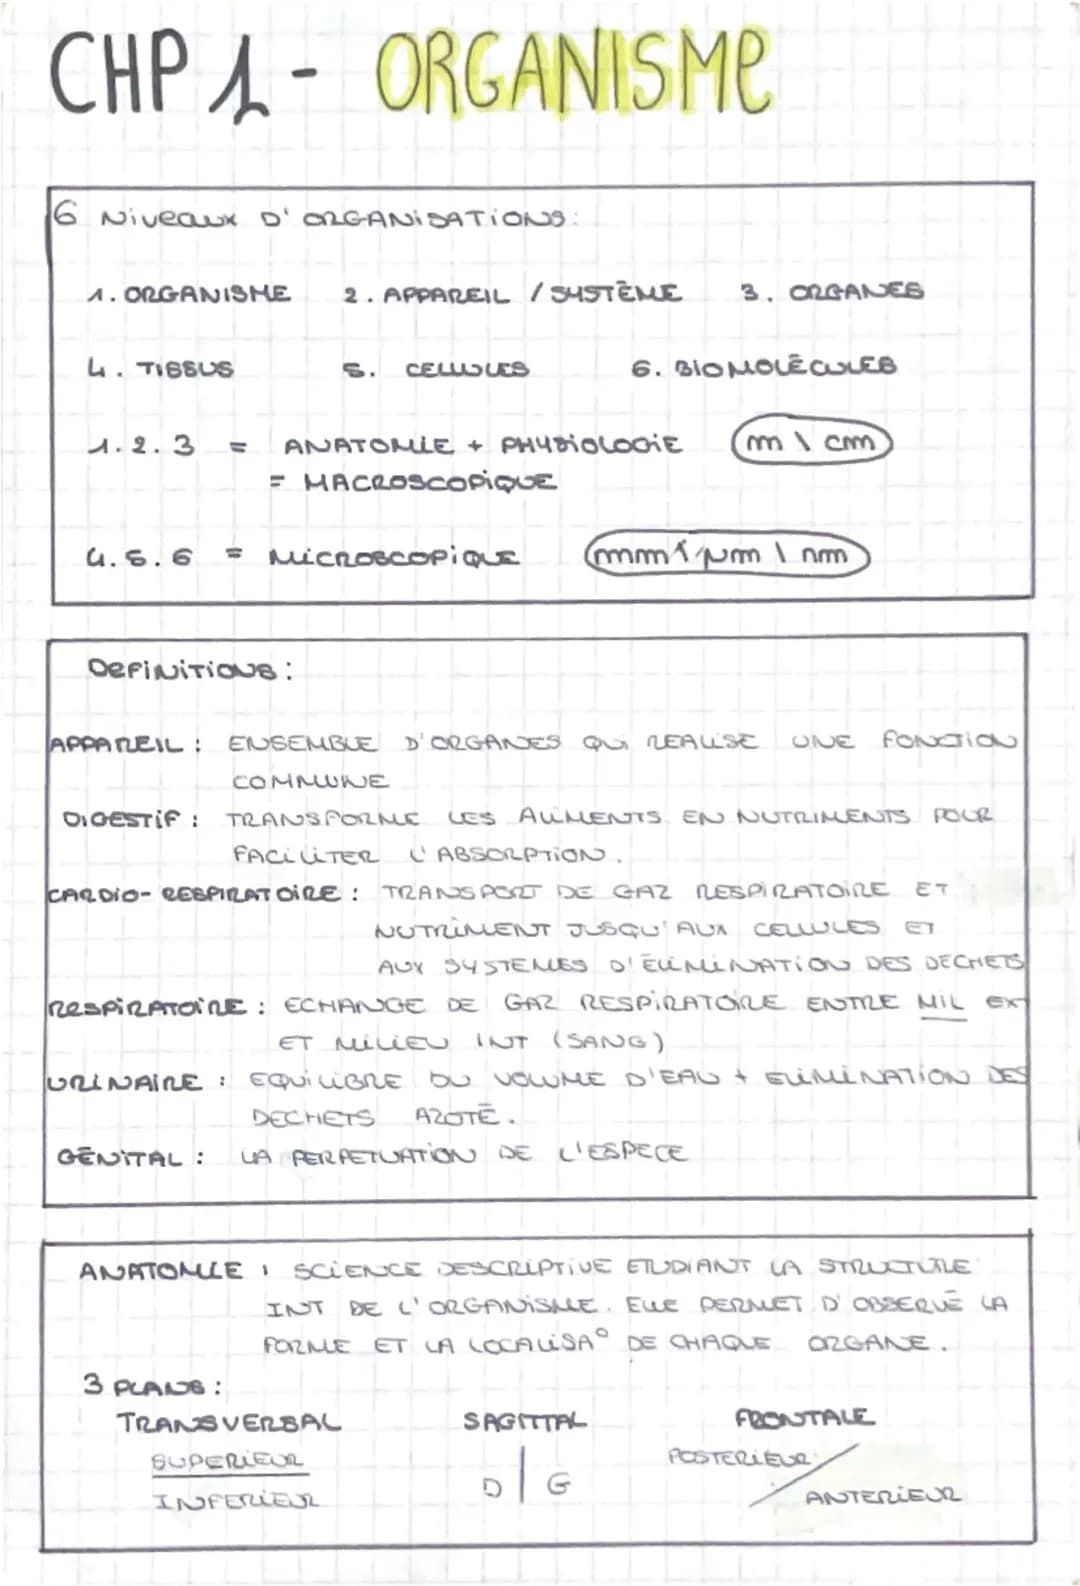 CHP 1 - ORGANISME
6 Niveaux D'ORGANISATIONS:
1. ORGANISME 2. APPAREIL / SYSTÈME 3. ORGANES
4. TISSUS 5. CELLULES 6. BIOMOLÉCULES
1.2.3 = ANATOMIE + PHYSIOLOGIE m \ cm
= MACROSCOPIQUE
4.5.6 = MICROSCOPIQUE mm \ µm \ nm
DEFINITIONS:
APPAREIL : ENSEMBLE D'ORGANES QUI REALISE UNE FONCTION
COMMUNE
DIGESTIF : TRANSFORME LES ALIMENTS EN NUTRIMENTS POUR
FACILITER L'ABSORPTION.
CARDIO-RESPIRATOIRE : TRANSPORT DE GAZ RESPIRATOIRE ET
NUTRIMENT JUSQU'AUX CELLULES ET
AUX SYSTEMES D'ÉLIMINATION DES DECHETS
RESPIRATOIRE : ECHANGE DE GAZ RESPIRATOIRE ENTRE MIL EXT
ET MILIEU INT (SANG)
URINAIRE : EQUILIBRE DU VOLUME D'EAU + ELIMINATION DES
DECHETS AZOTÉ.
GÉNITAL : LA PERPETUATION DE L'ESPECE
ANATOMIE : SCIENCE DESCRIPTIVE ETUDIANT LA STRUCTURE
INT DE L'ORGANISME. ELLE PERMET D'OBSERVÉ LA
FORME ET LA LOCALISA° DE CHAQUE ORGANE.
3 PLANS :
TRANSVERSAL SAGITTAL FRONTALE
SUPERIEUR POSTERIEUR
INFERIEUR D | G ANTERIEUR